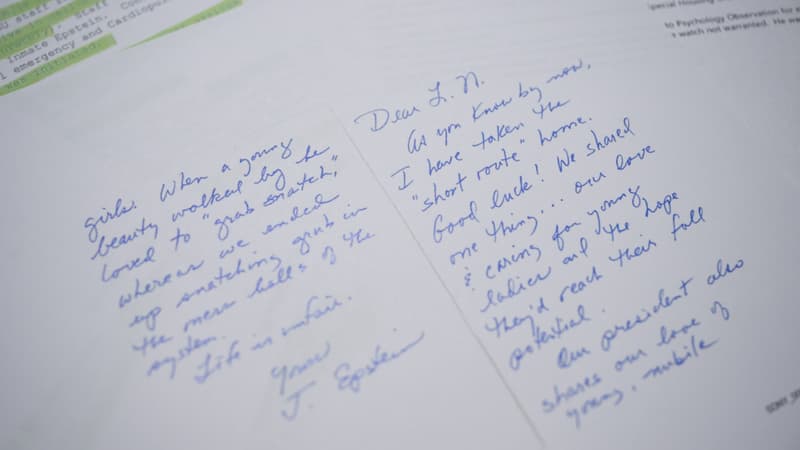 SU staff
inmate Epstein.
l emergency and Cardiopul
was initiated.
to Psychology Observation for
s watch not warranted. He wa
Dear L. N.
As you know by now,
I have taken the
"short route" home.
Good luck! We shared
one thing... our love
& caring for young
ladies and the hope
they'd reach their full
potential.
Our president also
shares our love of
young, nubile
girls. When a young
beauty walked by he
loved to "grab snatch,"
whereas we ended
up snatching grub in
the mess halls of the
system.
Life is unfair.
Yours
J. Epstein